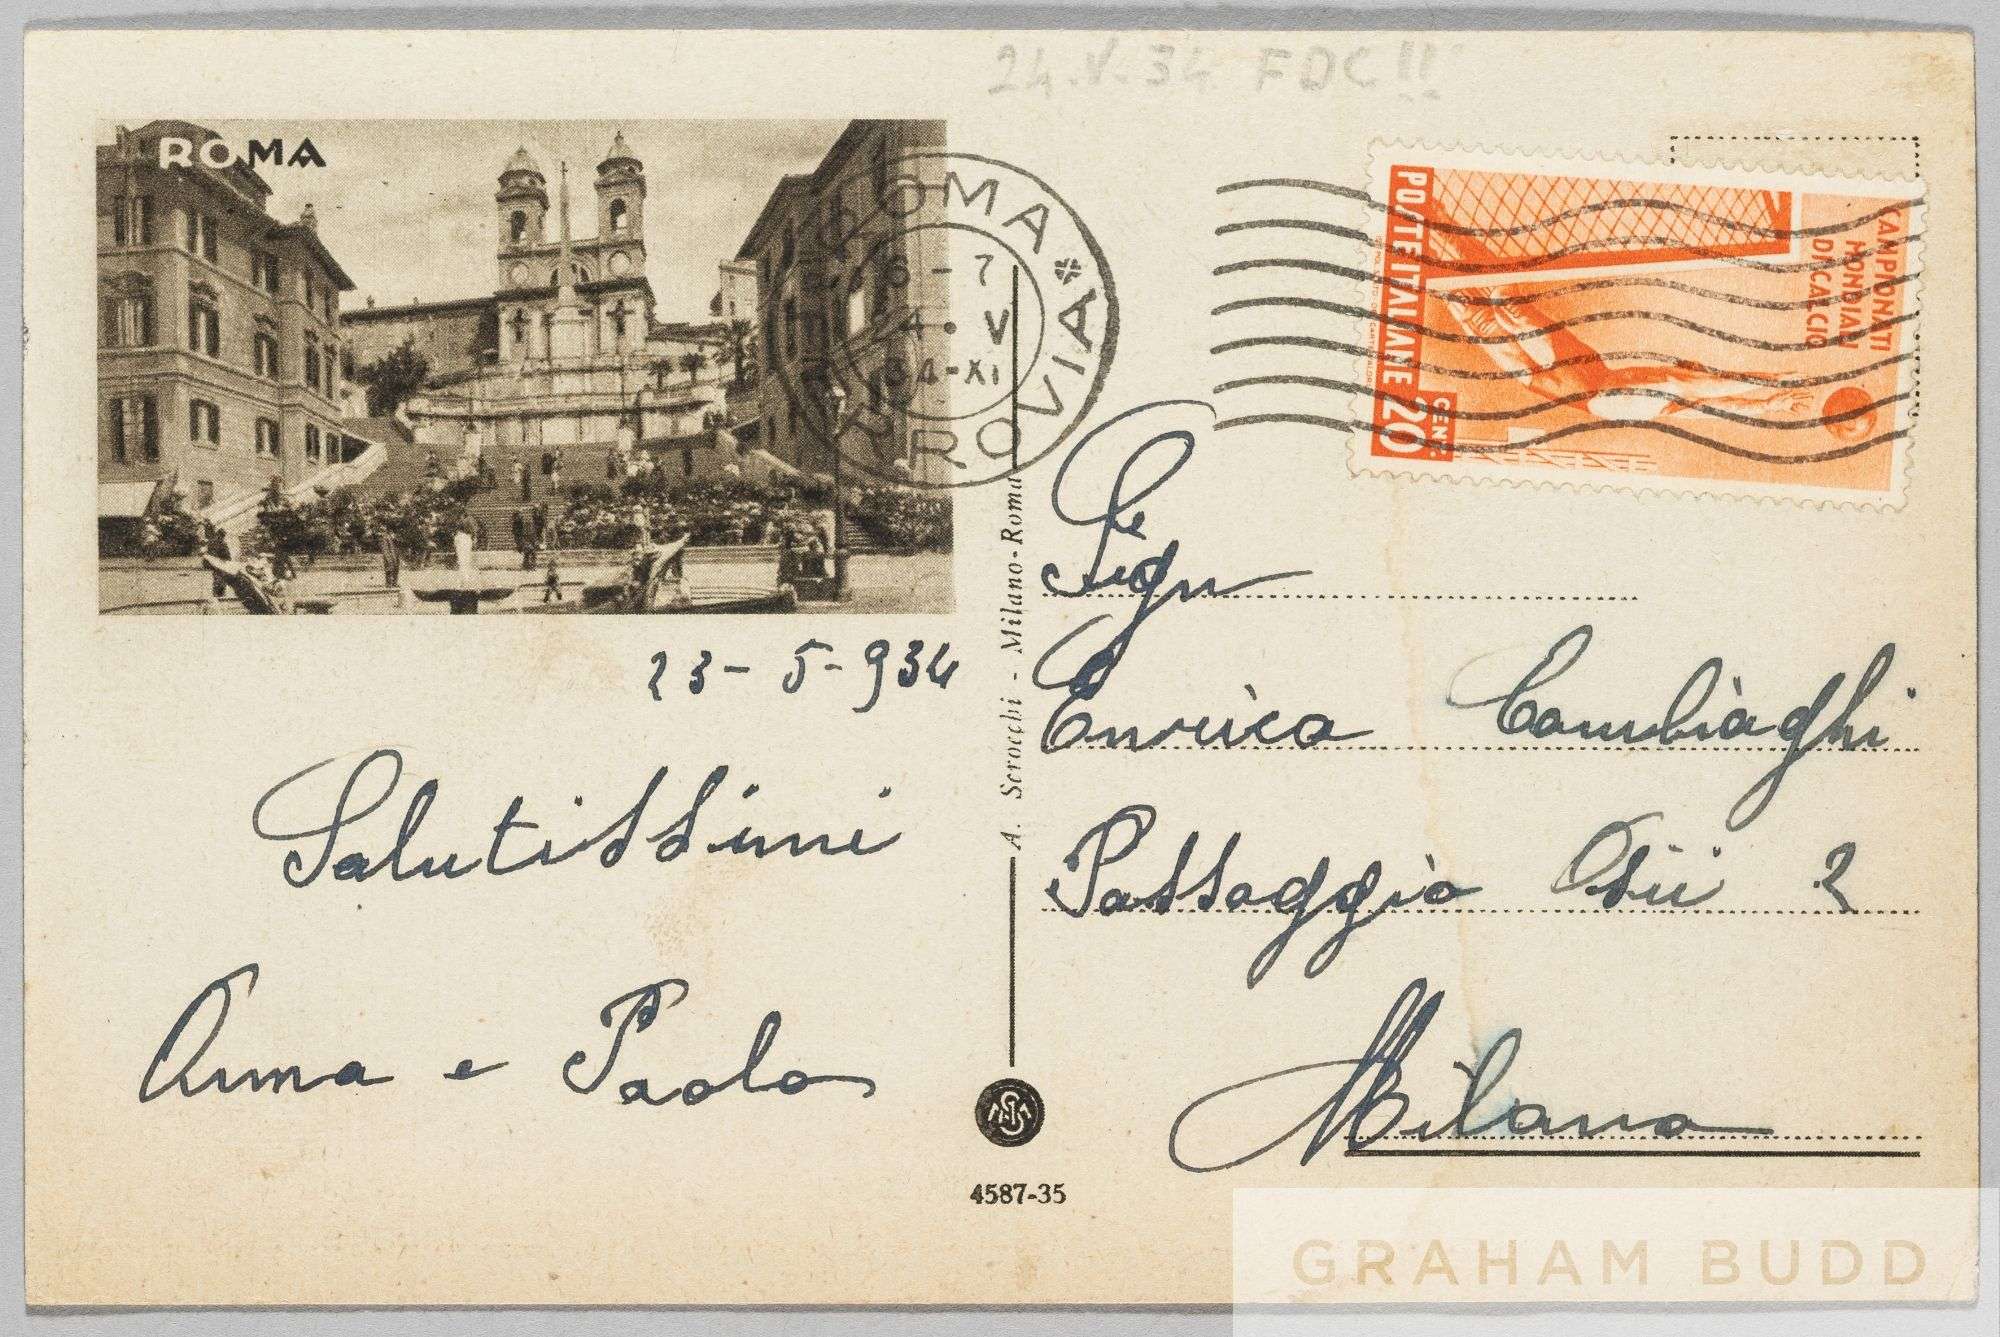 24.V.34 FDC!!
ROMA
ROMA
FERROVIA
6-7
24. V
34-XI
CAMPIONATI
MONDIALI
DI CALCIO
POSTE ITALIANE
CENT. 20
23-5-934
Salutissimi
Anna e Paolo
A. Scrocchi - Milano-Roma
4587-35
Sign
Enrico Cambiaghi
Passaggio Osii 2
Milano
GRAHAM BUDD